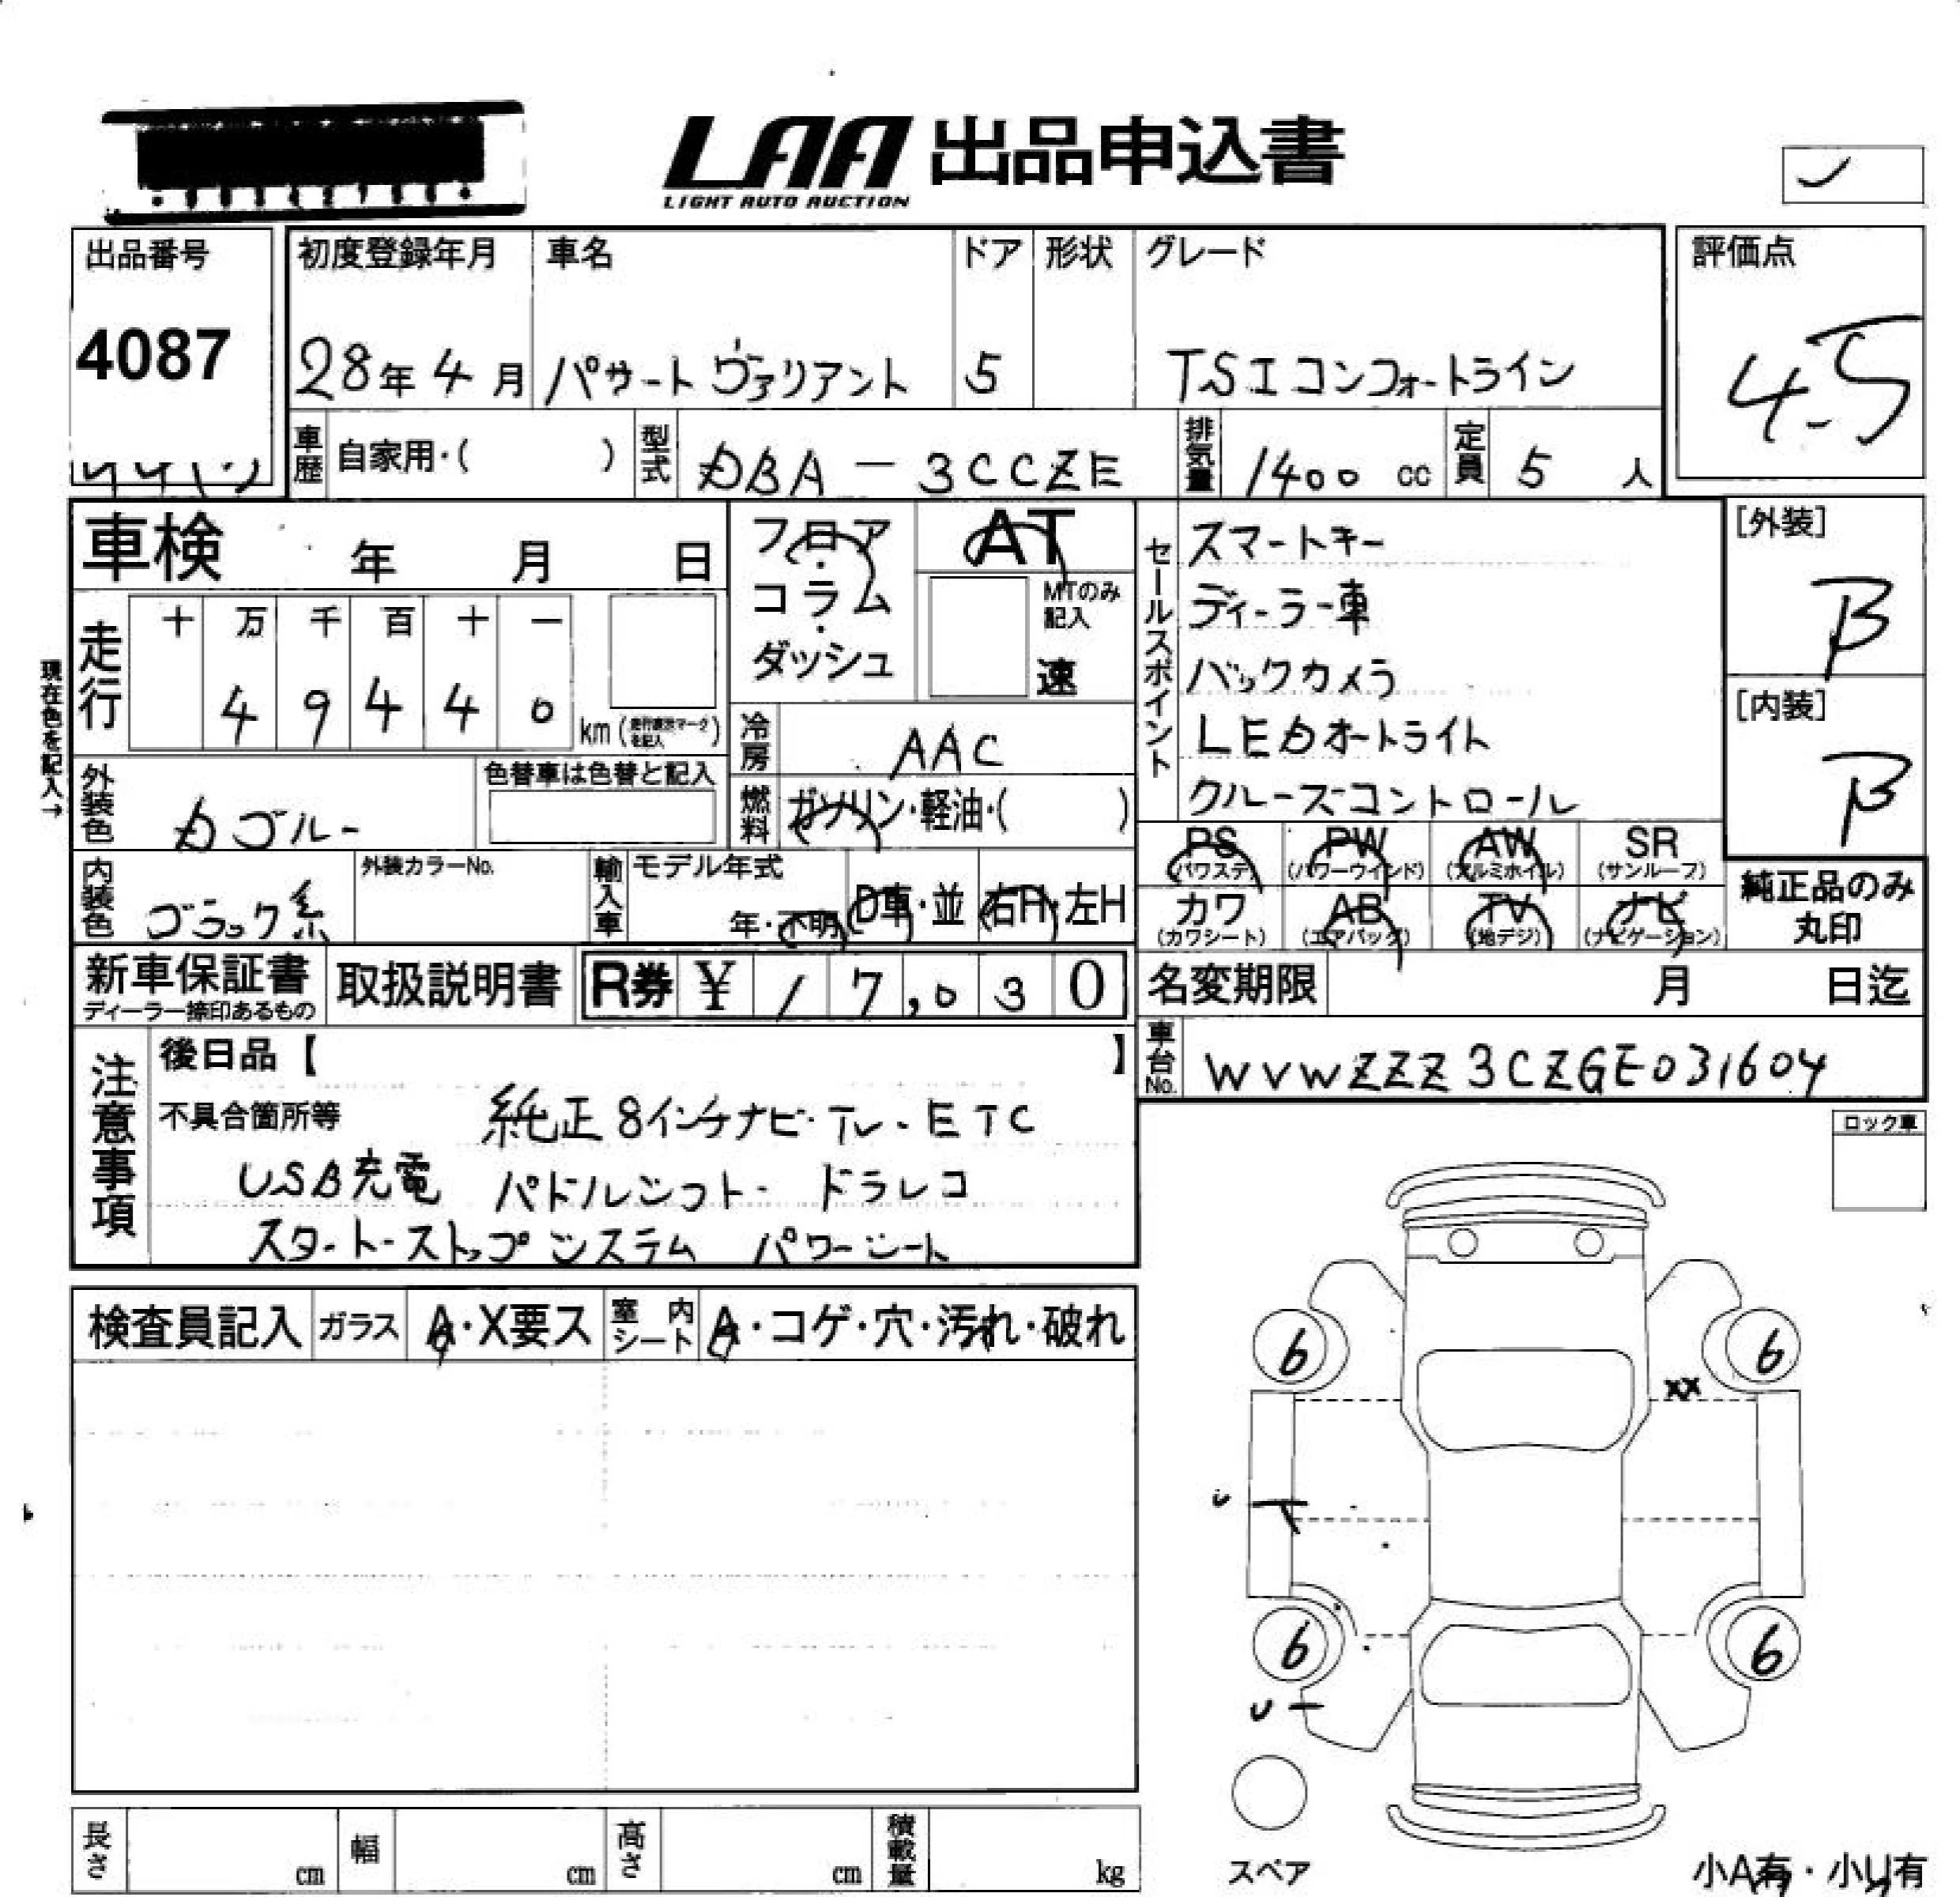 LAA 出品申込書
LIGHT AUTO AUCTION
出品番号
4087
初度登録年月 車名 ドア 形状 グレード
28年 4月 パサート ヴァリアント 5 TSI コンフォートライン
評価点
4.5
車歴 自家用・( ) 型式 DBA-3CCZE 排気量 1400 cc 定員 5 人
車検 年 月 日
フロア・コラム・ダッシュ
AT
MTのみ記入
速
セールスポイント
スマートキー
ディーラー車
バックカメラ
LEDオートライト
クルーズコントロール
[外装]
B
[内装]
B
現在色を記入→
走行
十 万 千 百 十 一
4 9 4 4 0 km
冷房 AAC
外装色 Dブルー 色替車は色替と記入
燃料 ガソリン・軽油・( )
PS (パワステ) PW (パワーウインド) AW (アルミホイル) SR (サンルーフ)
カワ (カワシート) AB (エアバッグ) TV (地デジ) ナビ (ナビゲーション)
純正品のみ
丸印
内装色 ブラック系 外装カラーNo. 輸入車 モデル年式 年・不明 D車・並 右H・左H
新車保証書 取扱説明書 R券 ¥ 17,030
ディーラー捺印あるもの
名変期限 月 日迄
車台No. WVWZZZ3CZGE031604
注意事項
後日品【 】
不具合箇所等 純正8インチナビ・TV・ETC
USB充電 パドルシフト・ドラレコ
スタート・ストップシステム パワーシート
ロック車
検査員記入 ガラス A・X要ス 室内シート A・コゲ・穴・汚れ・破れ
6 6
XX
U
6 6
U
スペア
長さ cm 幅 cm 高さ cm 積載量 kg
小A有・小U有